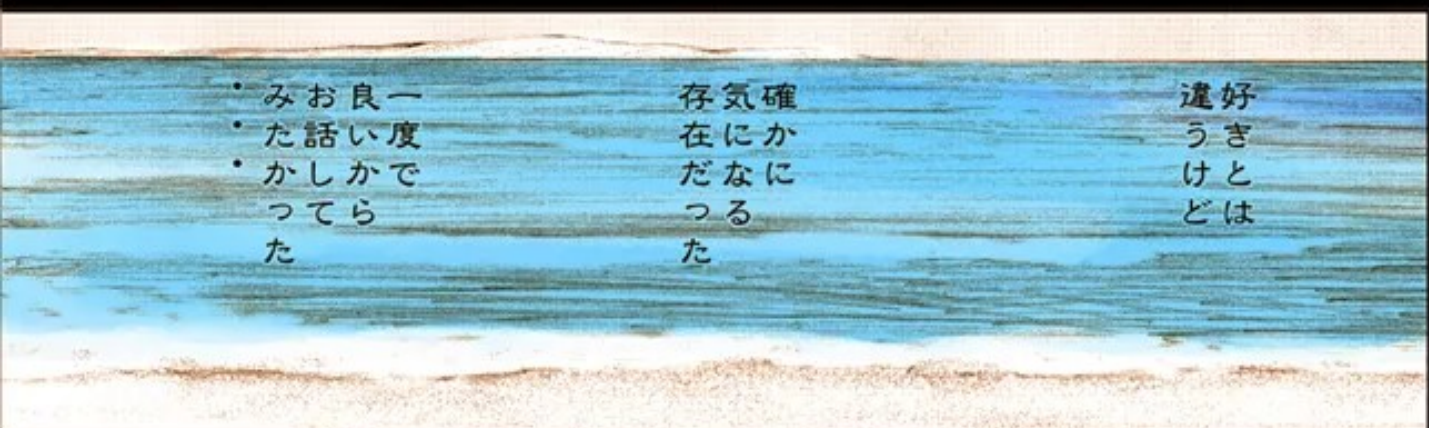 好きとは
違うけど
確かに
気になる
存在だった
一度で
良いから
お話して
みたかった
・・・